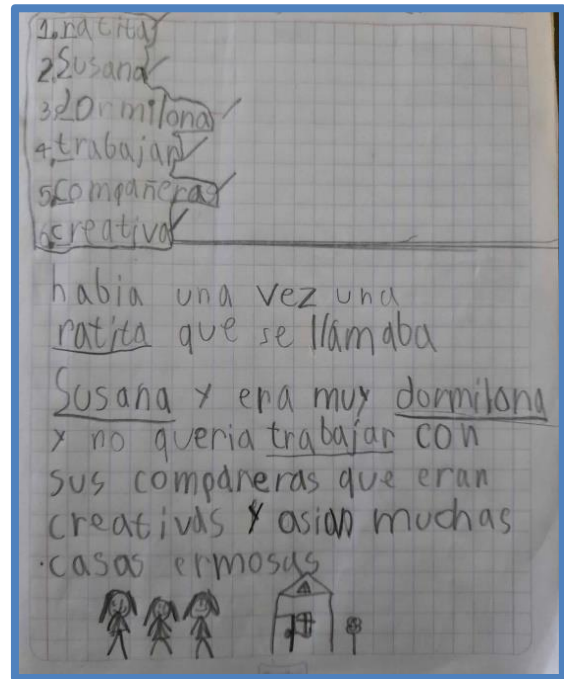 1. ratita
2. Susana
3. dormilona
4. trabajar
5. compañeras
6. creativa
habia una vez una
ratita que se llamaba
Susana y era muy dormilona
y no queria trabajar con
sus compañeras que eran
creativas y asian muchas
casas ermosas